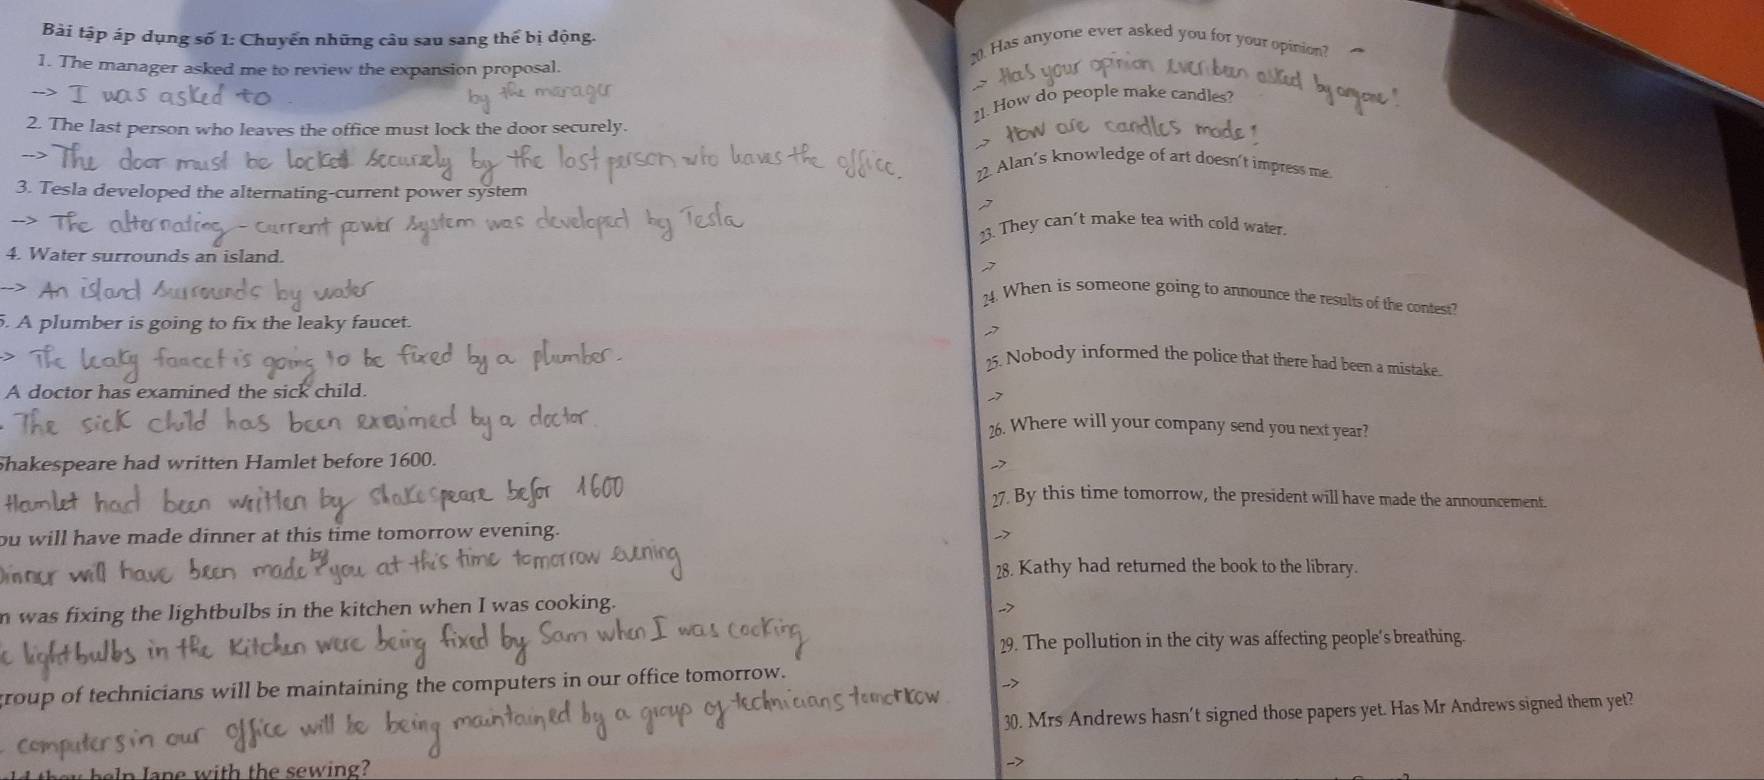 Bài tập áp dụng số 1: Chuyển những câu sau sang thể bị động.
1. The manager asked me to review the expansion proposal.
--> I was asked to by the manager
2. The last person who leaves the office must lock the door securely.
--> The door must be locked securely by the last person who leaves the office.
3. Tesla developed the alternating-current power system
--> The alternating-current power system was developed by Tesla
4. Water surrounds an island.
--> An island surrounds by water
5. A plumber is going to fix the leaky faucet.
> The leaky faucet is going to be fixed by a plumber.
A doctor has examined the sick child.
The sick child has been exaimed by a doctor.
Shakespeare had written Hamlet before 1600.
Hamlet had been written by shakespeare befor 1600
ou will have made dinner at this time tomorrow evening.
Dinner will have been made by you at this time tomorrow evening
m was fixing the lightbulbs in the kitchen when I was cooking.
lightbulbs in the kitchen were being fixed by Sam when I was cocking
group of technicians will be maintaining the computers in our office tomorrow.
computers in our office will be being maintained by a group of technicians tomorrow
they help Jane with the sewing?
20. Has anyone ever asked you for your opinion?
-> Has your opinion ever been asked by anyone?
21. How do people make candles?
-> How are candles made?
22. Alan's knowledge of art doesn't impress me.
->
23. They can't make tea with cold water.
->
24. When is someone going to announce the results of the contest?
->
25. Nobody informed the police that there had been a mistake.
->
26. Where will your company send you next year?
->
27. By this time tomorrow, the president will have made the announcement.
->
28. Kathy had returned the book to the library.
->
29. The pollution in the city was affecting people's breathing.
->
30. Mrs Andrews hasn't signed those papers yet. Has Mr Andrews signed them yet?
->